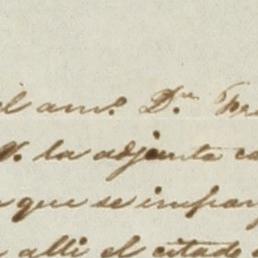 el am.o D.n Fr
V. la adjunta ca
que se impar
alli el citado